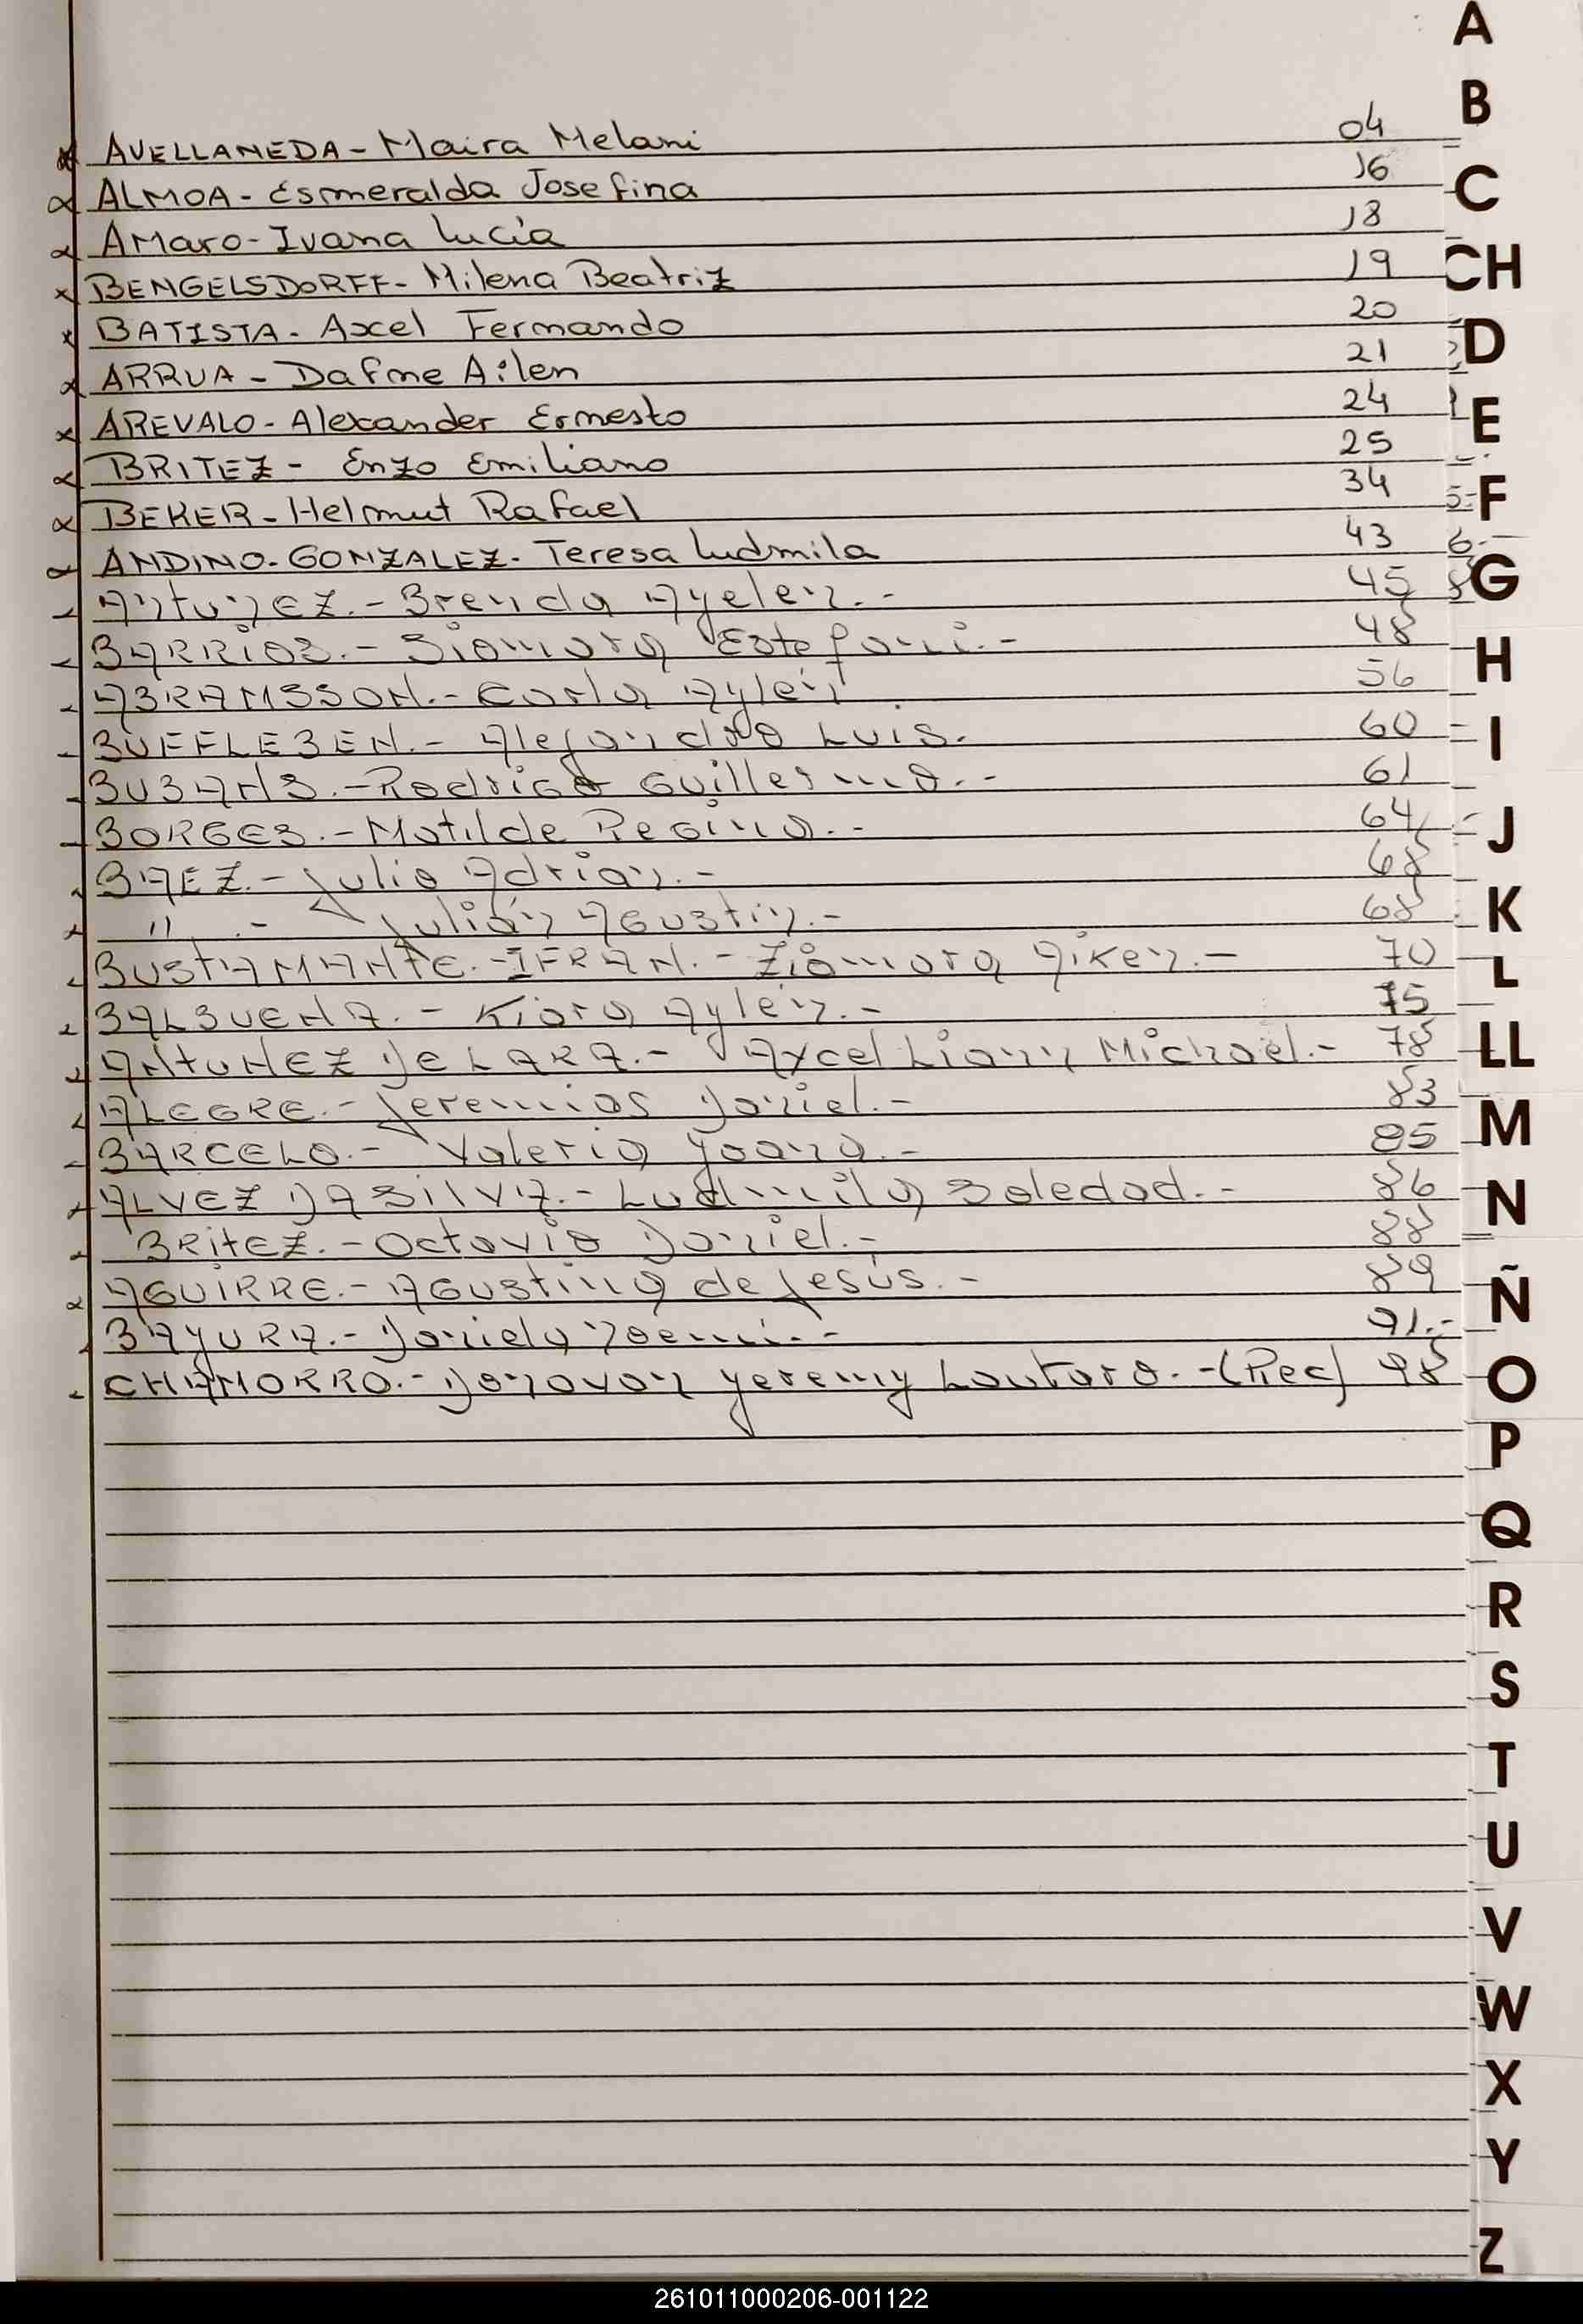 A
B
AVELLANEDA - Maira Melani 04
ALMOA - Esmeralda Josefina 16
C
AMARO - Ivana Lucía 18
BENGELSDORFF - Milena Beatriz 19
CH
BATISTA - Axel Fernando 20
D
ARRUA - Dafne Ailen 21
AREVALO - Alexander Ernesto 24
E
BRITEZ - Enzo Emiliano 25
BEKER - Helmut Rafael 34
F
ANDINO - GONZALEZ - Teresa Ludmila 43
Antunez.- Brenda Ayelen.- 45
G
BARRIOS.- Siomara Estefani.- 48
H
ABRAMSSON.- Carla Aylén 56
BUFFLEBEN.- Alejandro Luis. 60
I
BUBANS.- Rodrigo Guillermo.- 61
BORGES.- Matilde Regina.- 64
J
BAEZ.- Julio Adrian.- 68
" .- Julián Agustin.- 68
K
BUSTAMANTE.- IFRAN.- Ziomara Aiken.- 70
L
BALBUENA.- Kiara Aylén.- 75
ANTUNEZ DE LARA.- Axcel Liann Michael.- 78
LL
ALEGRE.- Jeremias Daniel.- 83
BARCELO.- Valeria Yoana.- 85
M
ALVEZ DA SILVA.- Ludmila Soledad.- 86
N
BRITEZ.- Octavio Daniel.- 88
AGUIRRE.- Agustina de Jesús.- 89
Ñ
BAYURA.- Daniela Noemi.- 91.-
CHAMORRO.- Donovan Yeremy Lautaro.- (Rec) 98
O
P
Q
R
S
T
U
V
W
X
Y
Z
261011000206-001122